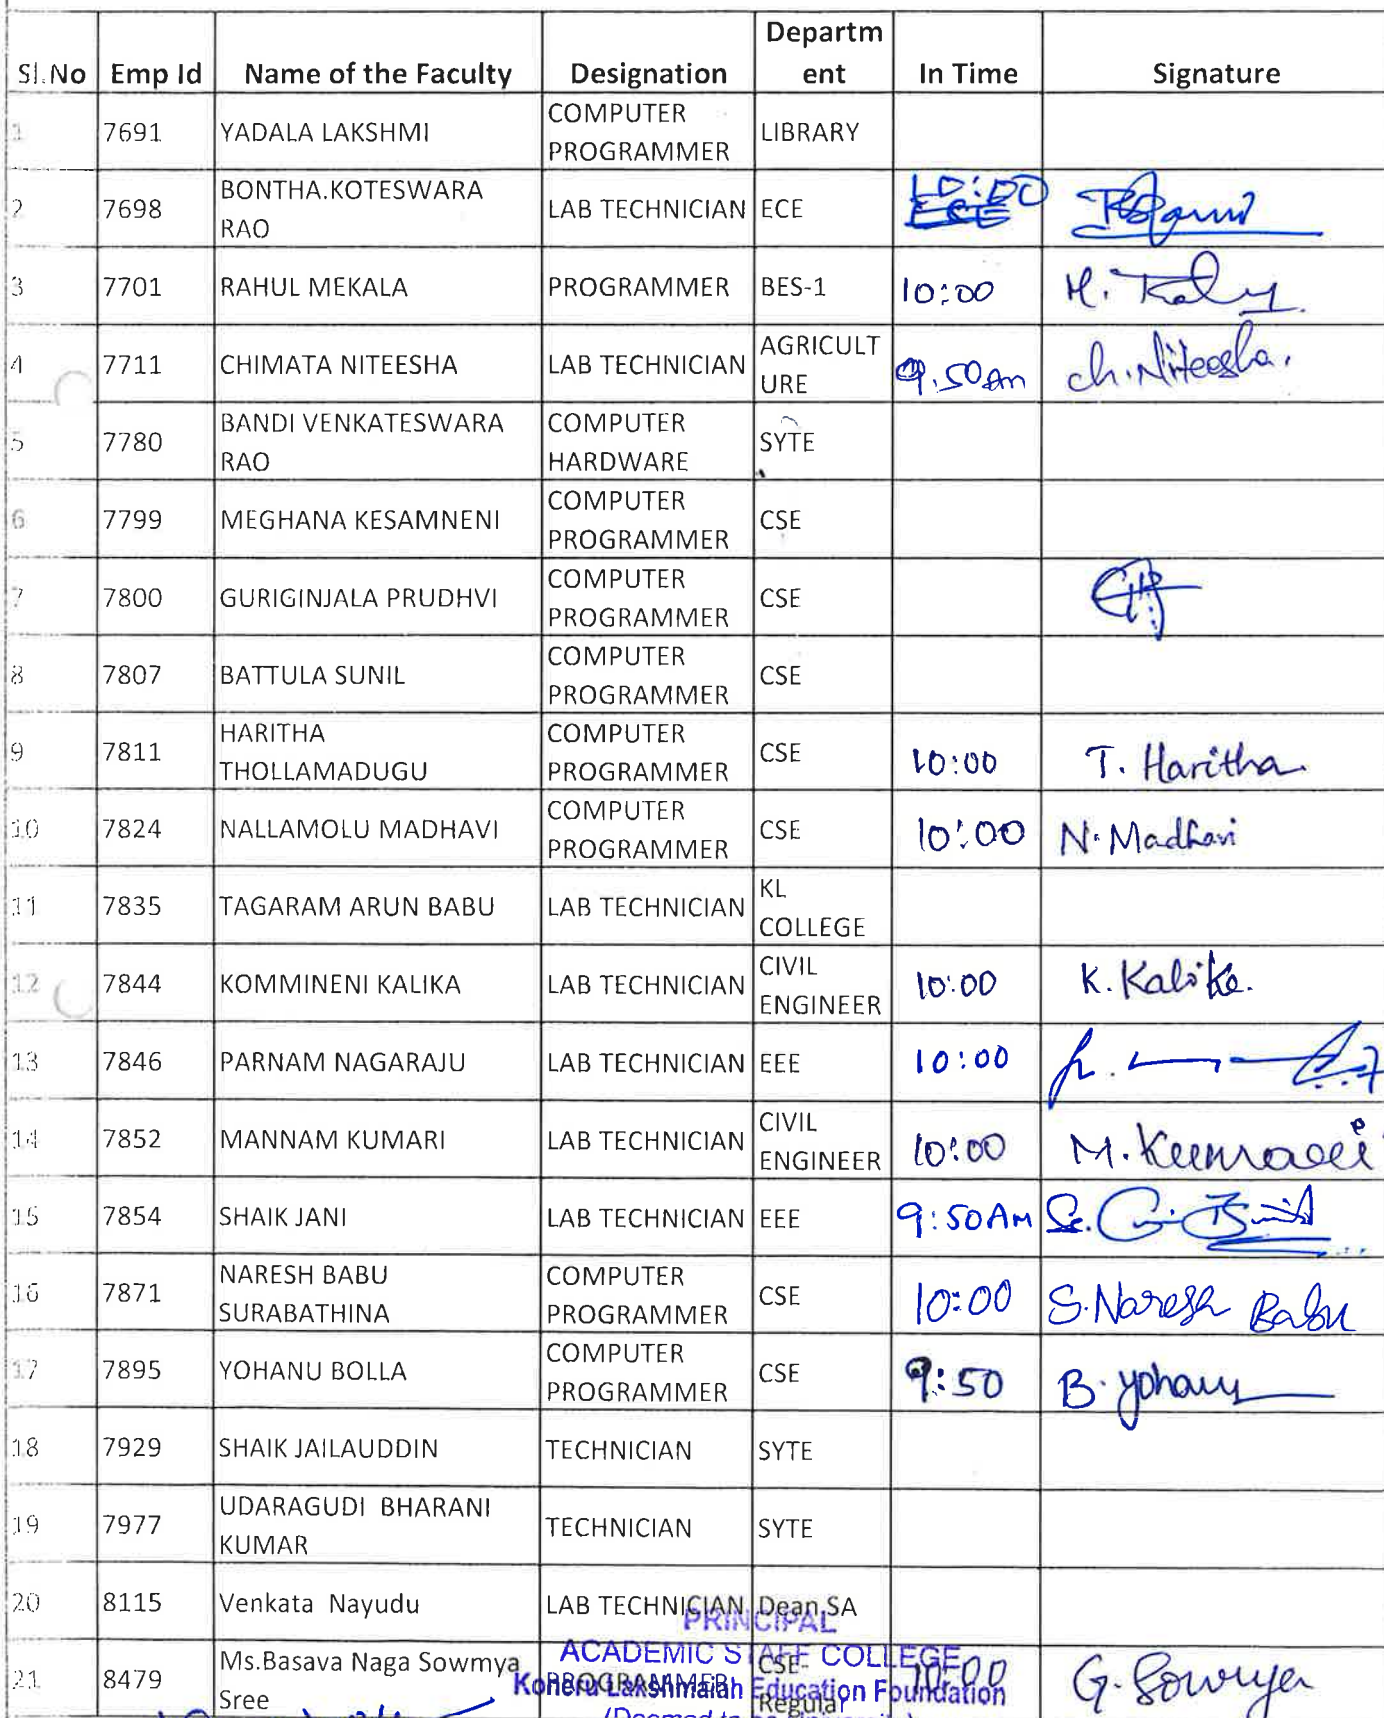 Sl.No Emp Id Name of the Faculty Designation Departm
ent In Time Signature
1 7691 YADALA LAKSHMI COMPUTER
PROGRAMMER LIBRARY
2 7698 BONTHA.KOTESWARA
RAO LAB TECHNICIAN ECE 10:00
3 7701 RAHUL MEKALA PROGRAMMER BES-1 10:00
4 7711 CHIMATA NITEESHA LAB TECHNICIAN AGRICULT
URE 9.50 Am Ch.Niteesha.
5 7780 BANDI VENKATESWARA
RAO COMPUTER
HARDWARE SYTE
6 7799 MEGHANA KESAMNENI COMPUTER
PROGRAMMER CSE
7 7800 GURIGINJALA PRUDHVI COMPUTER
PROGRAMMER CSE
8 7807 BATTULA SUNIL COMPUTER
PROGRAMMER CSE
9 7811 HARITHA
THOLLAMADUGU COMPUTER
PROGRAMMER CSE 10:00 T. Haritha
10 7824 NALLAMOLU MADHAVI COMPUTER
PROGRAMMER CSE 10:00 N. Madhavi
11 7835 TAGARAM ARUN BABU LAB TECHNICIAN KL
COLLEGE
12 7844 KOMMINENI KALIKA LAB TECHNICIAN CIVIL
ENGINEER 10:00 K. Kalika.
13 7846 PARNAM NAGARAJU LAB TECHNICIAN EEE 10:00
14 7852 MANNAM KUMARI LAB TECHNICIAN CIVIL
ENGINEER 10:00 M. Kumari
15 7854 SHAIK JANI LAB TECHNICIAN EEE 9:50AM
16 7871 NARESH BABU
SURABATHINA COMPUTER
PROGRAMMER CSE 10:00 S.Naresh Babu
17 7895 YOHANU BOLLA COMPUTER
PROGRAMMER CSE 9:50 B. Yohanu
18 7929 SHAIK JAILAUDDIN TECHNICIAN SYTE
19 7977 UDARAGUDI BHARANI
KUMAR TECHNICIAN SYTE
20 8115 Venkata Nayudu LAB TECHNICIAN Dean SA
PRINCIPAL
ACADEMIC STAFF COLLEGE
21 8479 Ms.Basava Naga Sowmya
Sree PROGRAMMER CSE-
Regular 10:00 G. Sowmya
Koneru Lakshmaiah Education Foundation
(Deemed to be